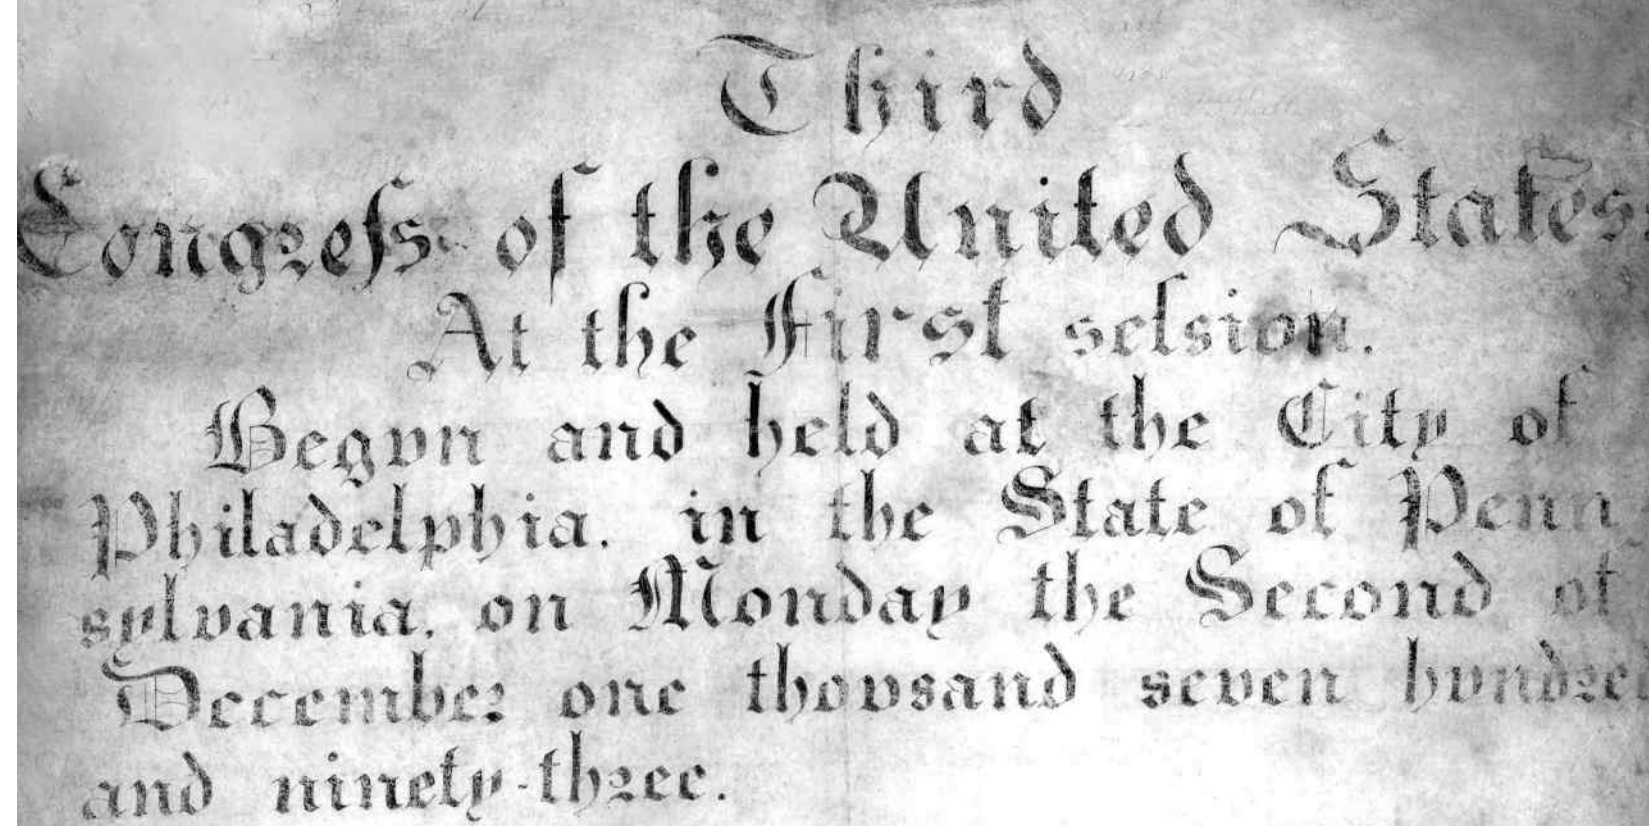 Third
Congreſs of the United States.
At the First seſsion.
Begvn and held at the City of
Philadelphia. in the State of Penn
sylvania. on Monday the Second of
December one thovsand seven hvndred
and ninety-three.